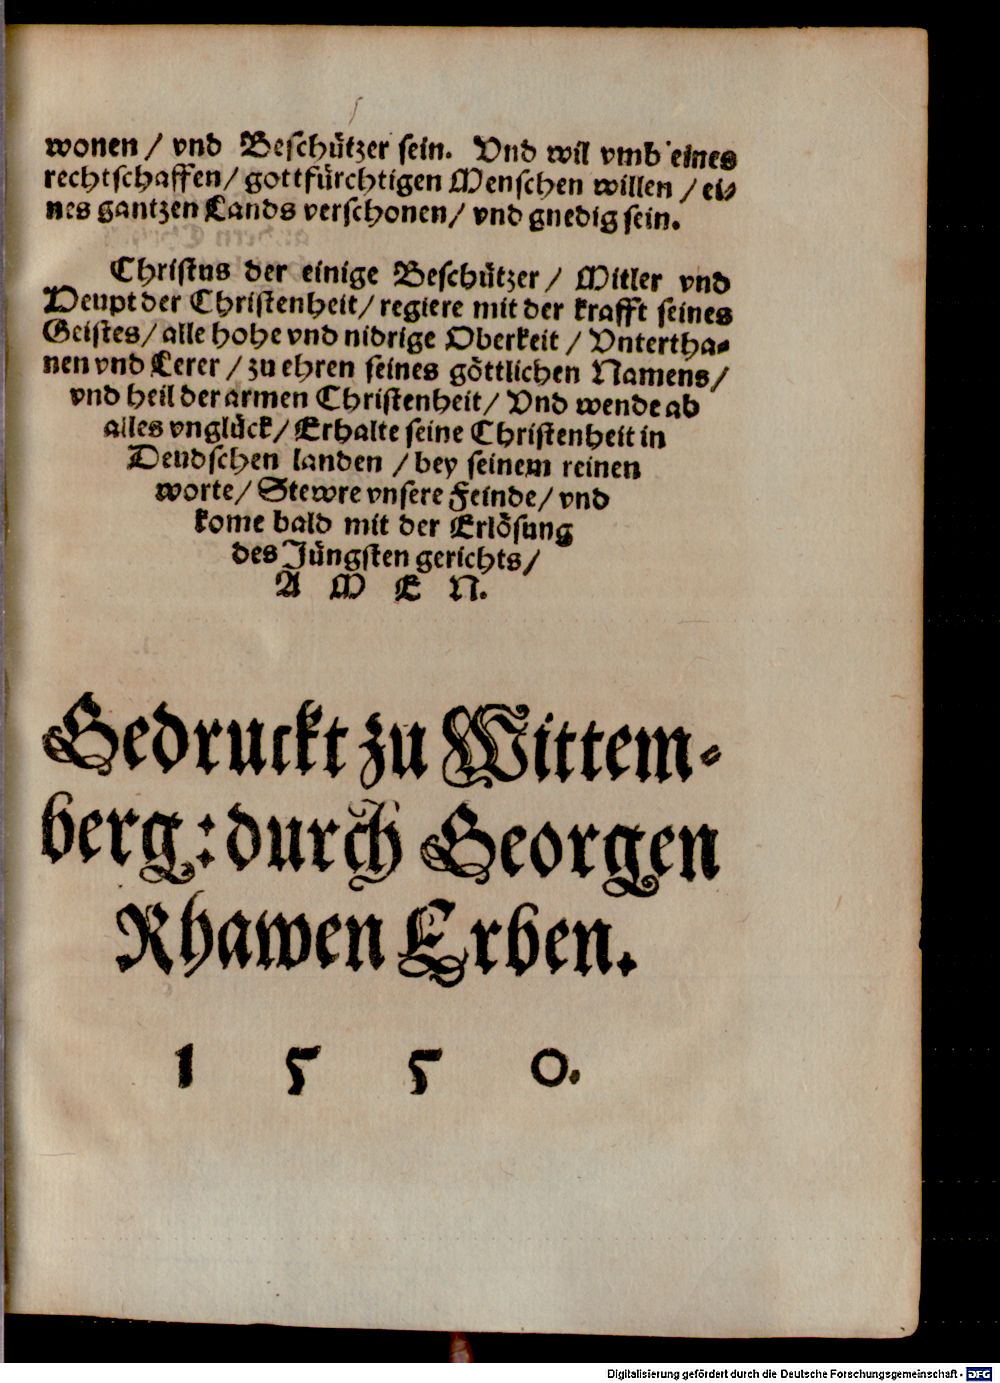 wonen / vnd Beschützer sein. Vnd wil vmb eines
rechtschaffen / gottfürchtigen Menschen willen / ei-
nes gantzen Lands verschonen / vnd gnedig sein.
Christus der einige Beschützer / Mitler vnd
Heupt der Christenheit / regiere mit der krafft seines
Geistes / alle hohe vnd nidrige Oberkeit / Vntertha-
nen vnd Lerer / zu ehren seines göttlichen Namens /
vnd heil der armen Christenheit / Vnd wende ab
alles vnglück / Erhalte seine Christenheit in
Deudschen landen / bey seinem reinen
worte / Stewre vnsere Feinde / vnd
kome bald mit der Erlösung
des Jüngsten gerichts /
A M E N.
Gedruckt zu Wittem-
berg : durch Georgen
Rhawen Erben.
1 5 5 0.
Digitalisierung gefördert durch die Deutsche Forschungsgemeinschaft - DFG